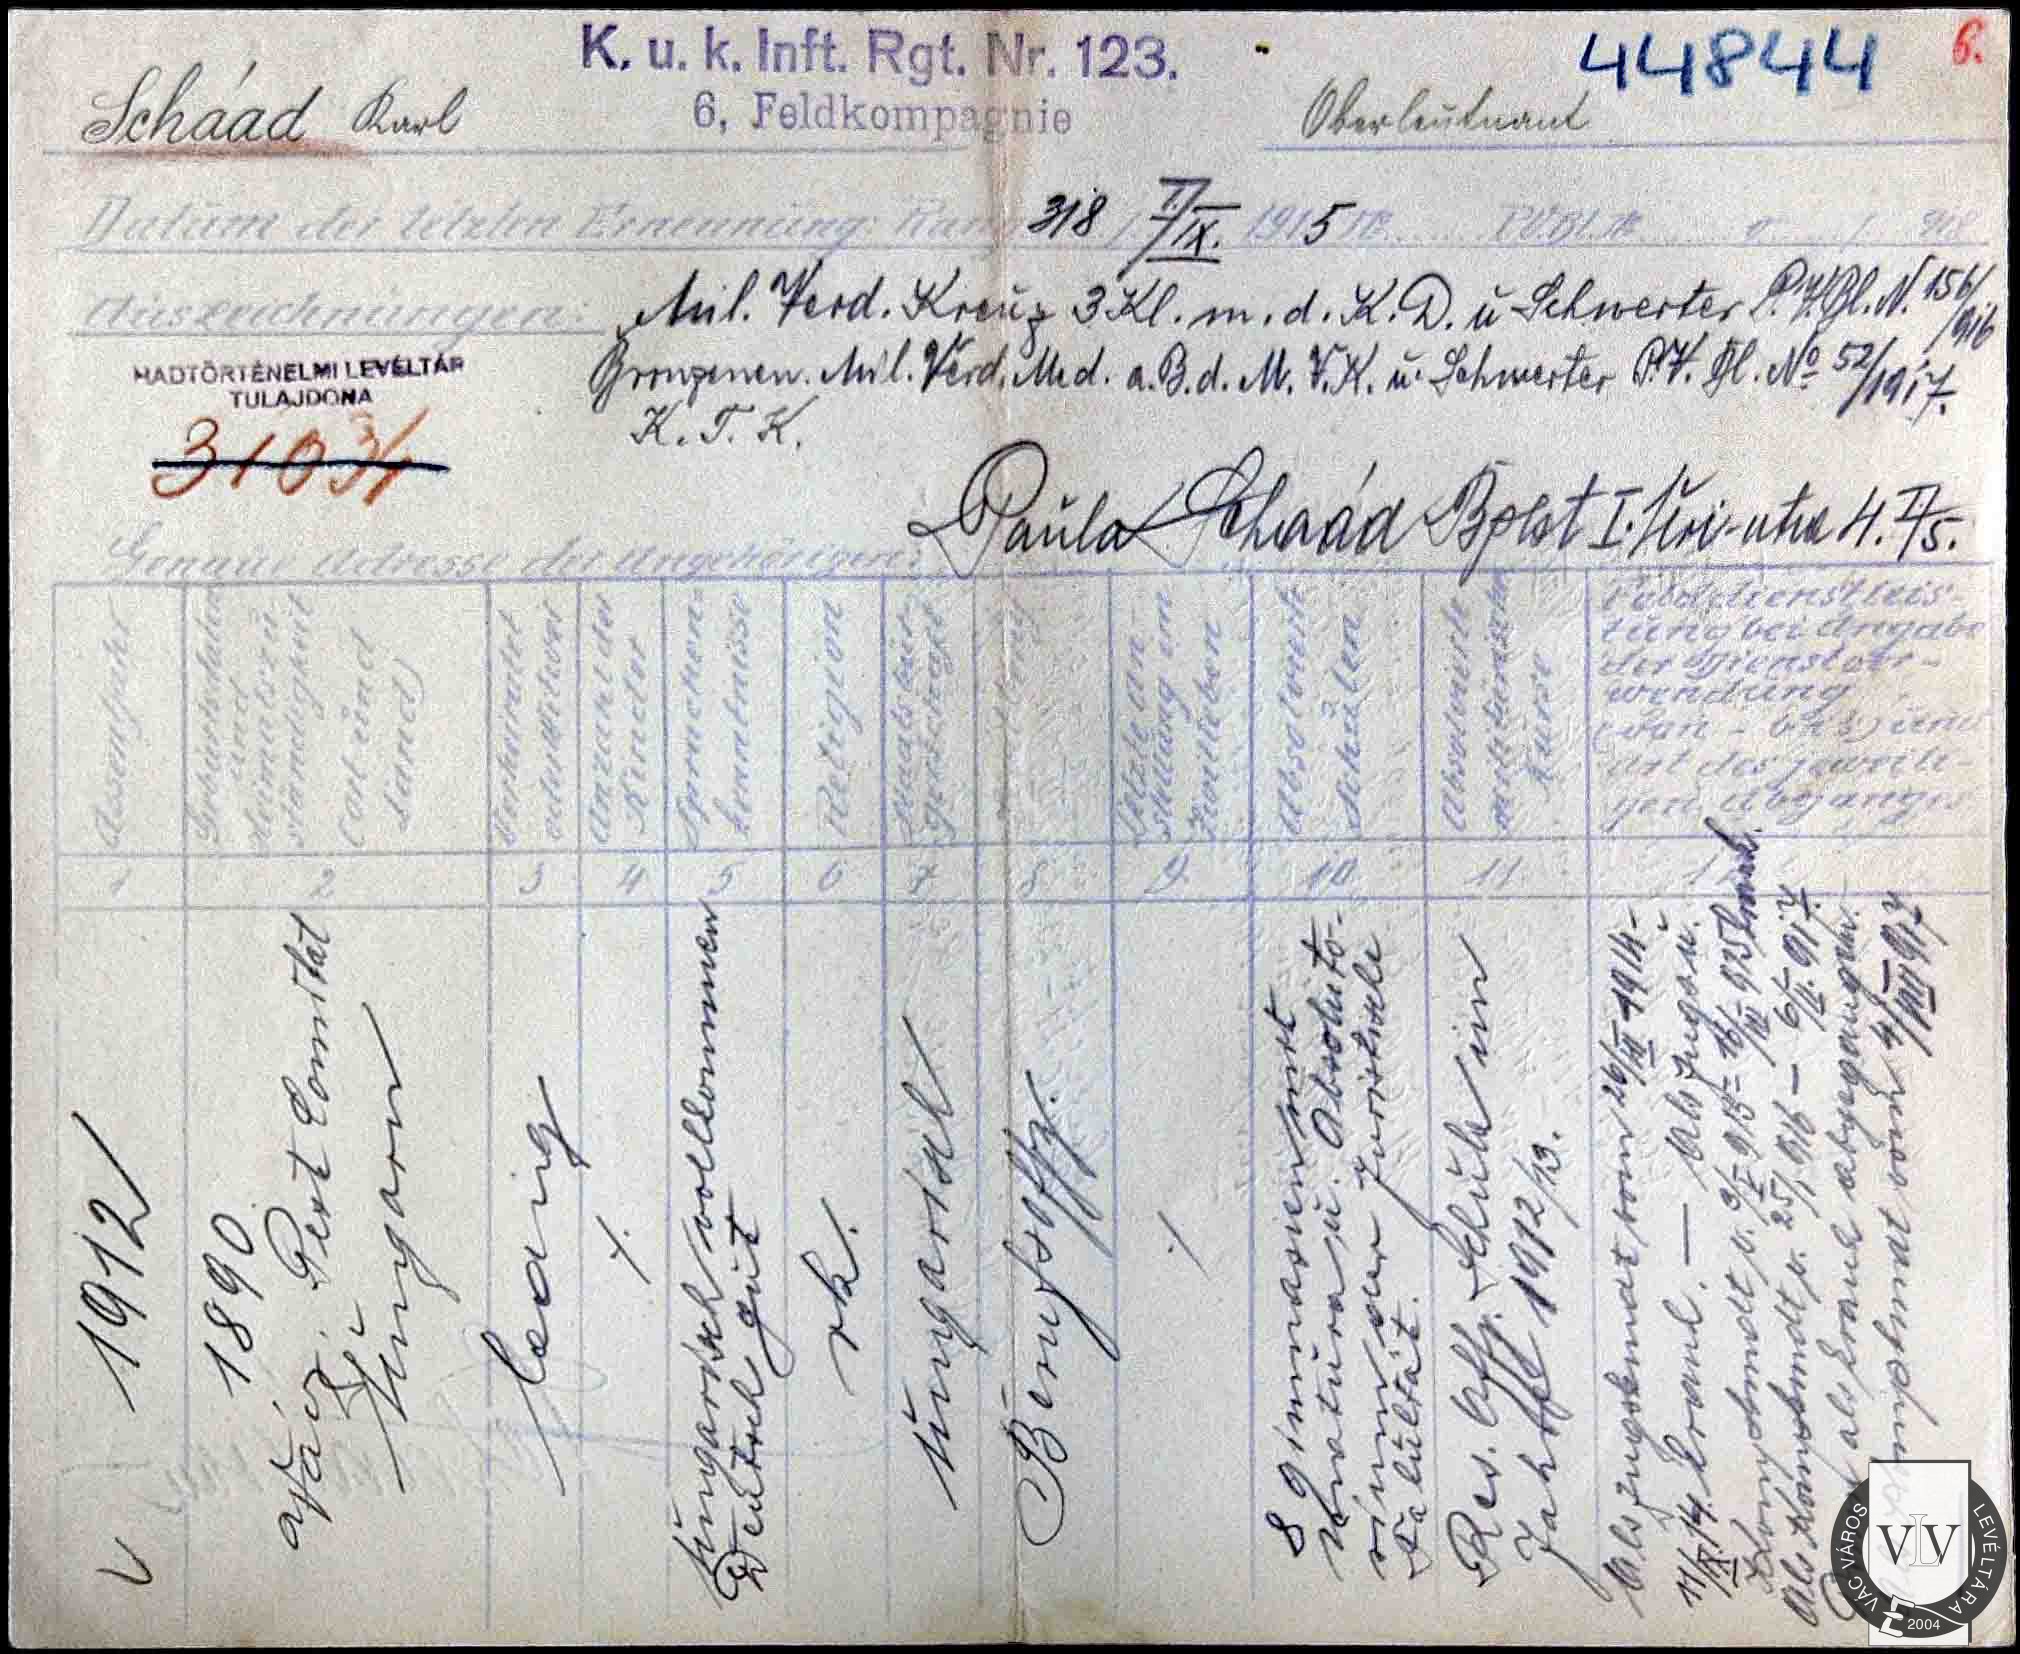 K. u. k. Inft. Rgt. Nr. 123.
44844
6.
Scháad Karl
6. Feldkompagnie
Oberleutnant
Datum der letzten Ernennung, Rang 318 1/IX. 1915
Auszeichnungen: Mil. Verd. Kreuz 3 Kl. m. d. K. D. ü Schwerter P.V.Bl. N. 156/1916
Bronzenen. Mil. Verd. Med. a. B. d. M. V. K. ü. Schwerter P.V. Bl. No 52/1917.
K. T. K.
HADTÖRTÉNELMI LEVÉLTÁR
TULAJDONA
Paula Schaád Bpest I. Úri-utca 4. II/5.
Genaue Adresse der Angehörigen:
Assentjahr
Geburtsdaten
und
Heimatszu
ständigkeit
(Ort und
Land)
Verheiratet
oder Witwer
Anzahl der
Kinder
Sprachen-
kenntnisse
Religion
Staatsbür-
gerschaft
Letzte An-
stellung im
Zivilleben
Absolvierte
Schulen
Absolvierte
militärische
Kurse
Felddienstleis-
tung bei Angabe
der Dienstver-
wendung
(von - bis) und
Art des jeweili-
gen Abganges
1 2 3 4 5 6 7 8 9 10 11
1912
1890
Pest Comitat
Ungarn
ledig
ungarisch vollkommen
Deutsch gut
rk.
ungarisch
Berufsoffz.
8 gimnasien mit
Matura u. Absoluto-
rium der Juristische
Fakultät.
Res. Off. Schule im
Jahre 1912/13.
Als Zugskmdt vom 26/ 1914-
krank. — Als Zugs u.
Komp. kmdt v. 915 - 16/ 915 krank.
Als Kompkmdt v. 25/ 916 — 6/ 917.
als krank abgegangen.
vom 4/VIII 917
VÁC VÁROS LEVÉLTÁRA
VLV
2004